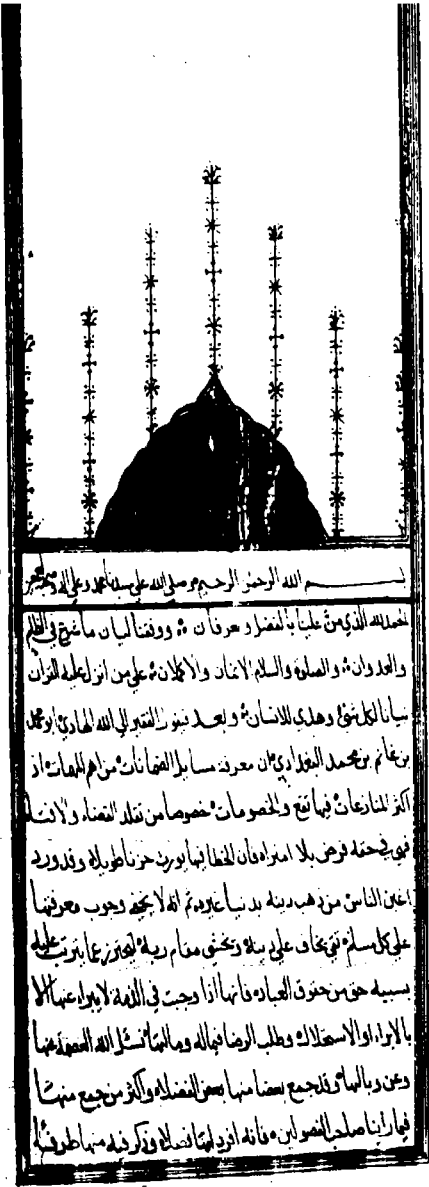 بسم الله الرحمن الرحيم وصلى الله على سيدنا محمد وعلى اله وصحبه
الحمد لله الذي من علينا بالفضل وعرفان ووفقنا لبيان ما غرم في الظلم
والعدوان والصلوة والسلام الاتمان والاكملان على من انزل عليه القران
تبيانا لكل شئ وهدي للانسان وبعد فيقول الفقير الي الله الهادي ابو محمد
بن غانم بن محمد البغدادي ان معرفة مسايل الضمانات من اهم المهمات اذ
اكثر المنازعات فيها تقع والخصومات خصوصا من تقلد القضاء والافتاء
فهي في حقه فرض بلا امتراء فان الخطا فيها يورث حزنا طويلا وقد ورد
اغبن الناس من ذهب دينه بدنيا غيره ثم انه لا يخفي وجوب معرفتها
على كل مسلم تقي يخاف على دينه ويخشي مقام ربه ليحترز عما يترتب عليه
بسببه حق من حقوق العباد فانها اذا وجبت في الذمة لا يبراء عنها الا
بالابراء او الاستهلاك وطلب الرضا فيماله ومالها نسئل الله العصمة عنها
وعن وبالها وقد جمع بعضا منها بعض الفضلاء واكثر من جمع منها
فيما راينا صاحب الفصولين فانه افرد لها فصلا وذكر فيه منها طرفا